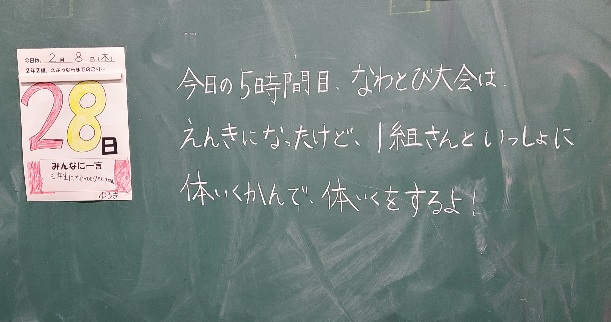 今日は、2月8日(木)
28
日
みんなに一言
今日の5時間目、なわとび大会は
えんきになったけど、1組さんといっしょに
体いくかんで、体いくをするよ!